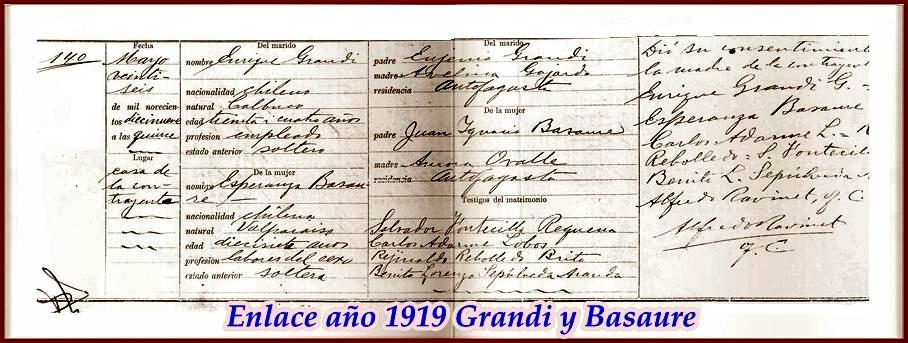 140
Fecha
Mayo
veinti-
seis
de mil novecien-
tos diecinueve
a las quince
Lugar
casa de
la con-
trayente
Del marido
nombre Enrique Grandi
nacionalidad chileno
natural Calbuco
edad treinta i cuatro años
profesion empleado
estado anterior soltero
De la mujer
nombre Esperanza Basau-
re
nacionalidad chilena
natural Valparaiso
edad diecisiete años
profesion labores del sexo
estado anterior soltera
Del marido
padre Eugenio Grandi
madre Avelina Gajardo
residencia Antofagasta
De la mujer
padre Juan Ignacio Basaure
madre Aurora Ovalle
residencia Antofagasta
Testigos del matrimonio
Salvador Fontecilla Requena
Carlos Adarme Lobos
Reinaldo Rebolledo Brito
Benito Lorenzo Sepúlveda Aranda
Dió su consentimient
la madre de la contrayent
Enrique Grandi G. =
Esperanza Basaure
Carlos Adarme L. = R
Rebolledo = S. Fontecill
Benito L. Sepúlveda
Alfredo Ravinet, O. C.
Alfredo Ravinet
O. C.
Enlace año 1919 Grandi y Basaure